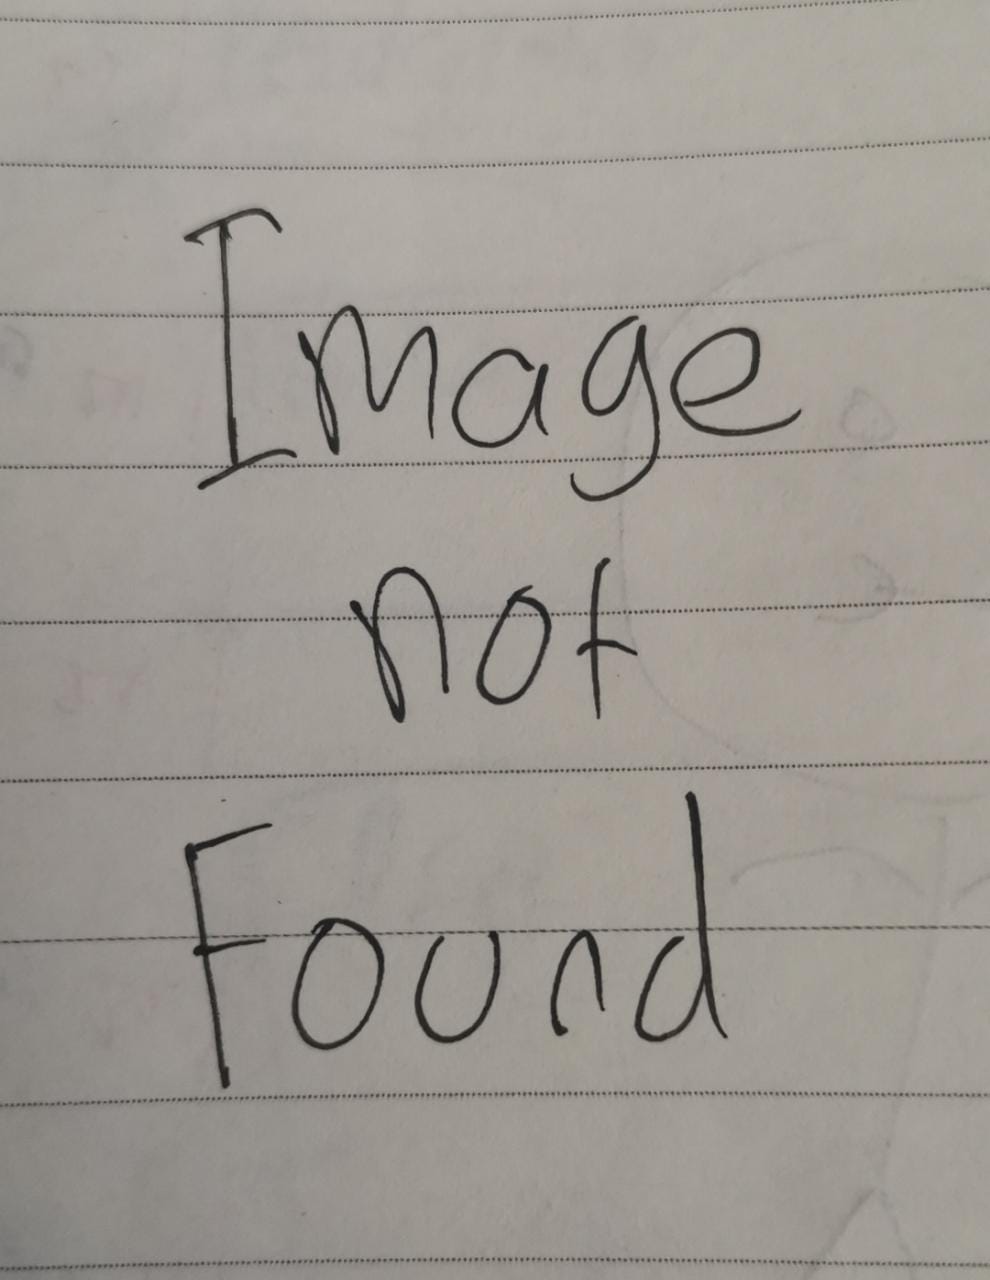 Image
not
Found